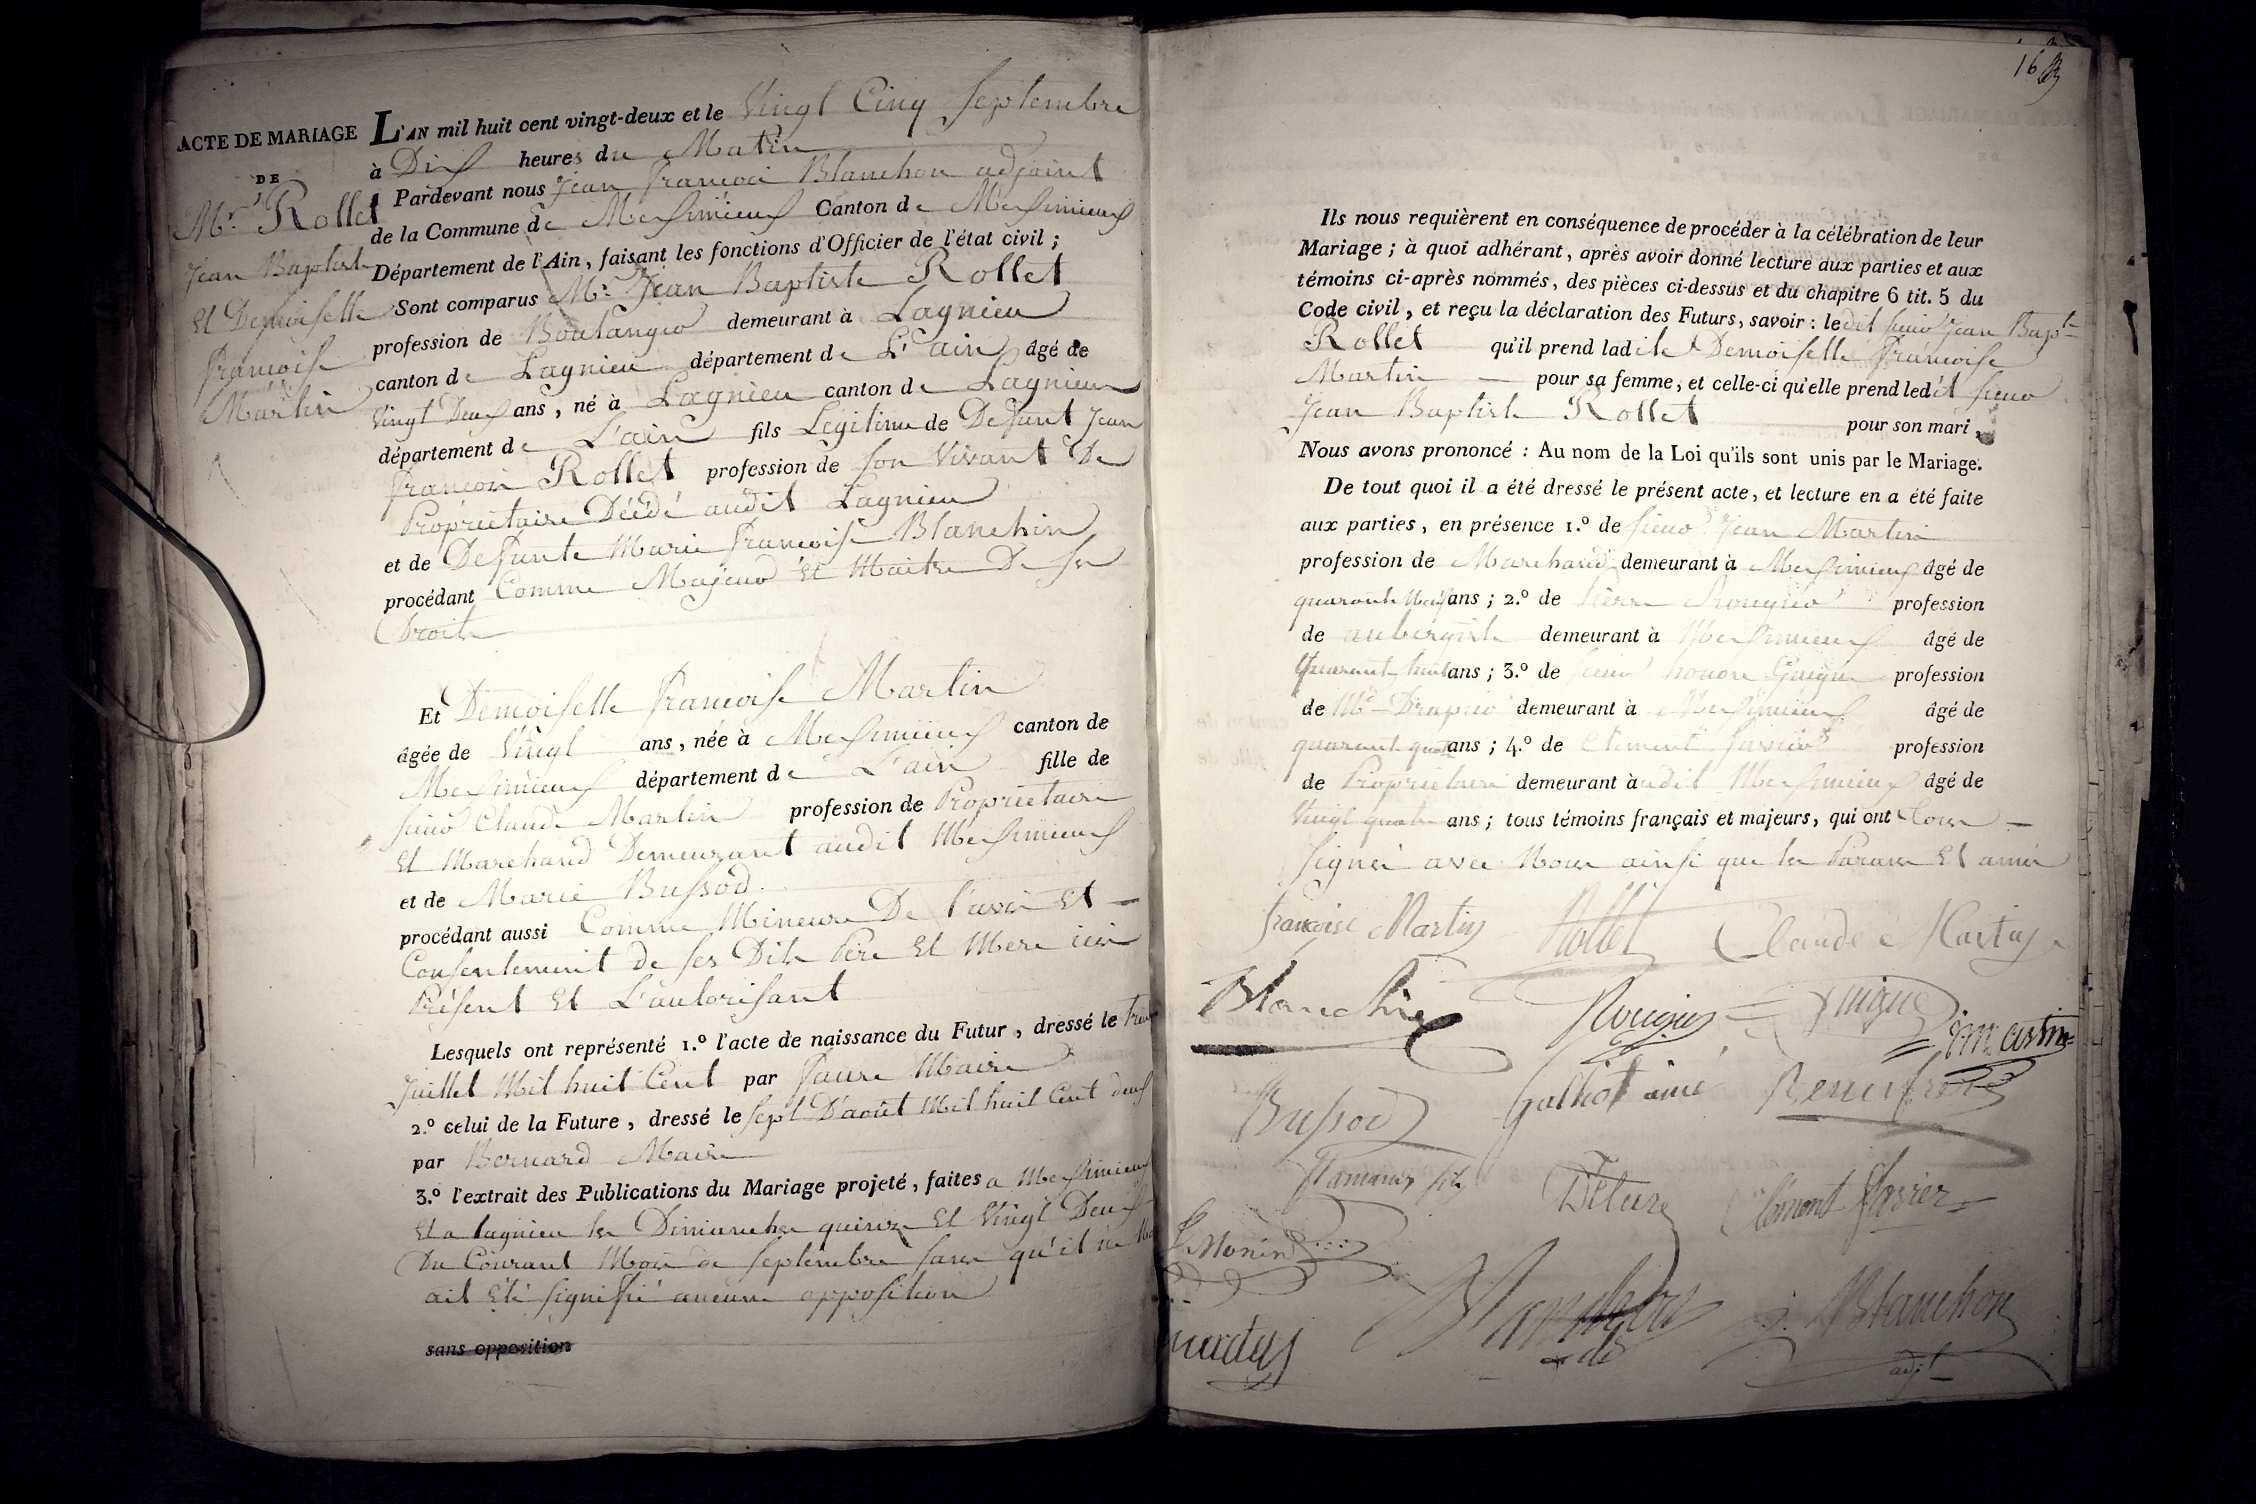 ACTE DE MARIAGE
DE
Mr. Rollet
Jean Baptiste
Et Demoiselle
francoise
Martin
L'AN mil huit cent vingt-deux et le Vingt Cinq Septembre
à Dix heures du Matin
Pardevant nous Jean francoi Blanchon adjoint
de la Commune de Meximieux Canton de Meximieux
Département de l'Ain, faisant les fonctions d'Officier de l'état civil ;
Sont comparus Mr. Jean Baptiste Rollet
profession de Boulanger demeurant à Lagnieu
canton de Lagnieu département de L'ain âgé de
Vingt Deux ans, né à Lagnieu canton de Lagnieu
département de L'ain fils Légitime de Defunt Jean
francois Rollet profession de son Vivant De
Propriétaire Décédé audit Lagnieu
et de Defunte Marie francoise Blanchin
procédant Comme Majeur Et Maitre De ses
Droits
Et Demoiselle francoise Martin
âgée de Vingt ans, née à Meximieux canton de
Meximieux département de L'ain fille de
sieur Claude Martin profession de Propriétaire
Et Marchand Demeurant audit Meximieux
et de Marie Bussod
procédant aussi Comme Mineure De l'avis Et
Consentement de ses Dits Père Et Mere ici
Présent Et L'autorisant
Lesquels ont représenté 1.º l'acte de naissance du Futur, dressé le
Juillet Mil huit Cent par faure Maire
2.º celui de la Future, dressé le sept D'août Mil huit Cent deux
par Bernard Maire
3.º l'extrait des Publications du Mariage projeté, faites a Meximieux
Et a lagnieu les Dimanches quinze Et Vingt Deux
Du Courant Mois de Septembre sans qu'il n
ait Eté signifié aucune opposition
sans opposition
16
Ils nous requièrent en conséquence de procéder à la célébration de leur
Mariage ; à quoi adhérant, après avoir donné lecture aux parties et aux
témoins ci-après nommés, des pièces ci-dessus et du chapitre 6 tit. 5 du
Code civil, et reçu la déclaration des Futurs, savoir : ledit sieur Jean Bapte
Rollet qu'il prend ladite Demoiselle francoise
Martin pour sa femme, et celle-ci qu'elle prend ledit sieur
Jean Baptiste Rollet pour son mari,
Nous avons prononcé : Au nom de la Loi qu'ils sont unis par le Mariage.
De tout quoi il a été dressé le présent acte, et lecture en a été faite
aux parties, en présence 1.º de sieur Jean Martin
profession de Marchand demeurant à Meximieux âgé de
quarante Neuf ans ; 2.º de Pierre Rougier profession
de aubergiste demeurant à Meximieux âgé de
Quarante huit ans ; 3.º de sieur honore Guigue profession
de Md Drapier demeurant à Meximieux âgé de
quarante quatre ans ; 4.º de Clement favier profession
de Propriétaire demeurant à audit Meximieux âgé de
Vingt quatre ans ; tous témoins français et majeurs, qui ont tous
signés avec Nous ainsi que les Parans Et amis
francoise Martin Rollet Claude Martin
Blanchin Rougier Guigue
J M artin
Bussod Galliot ainé
fils Clément favier
Monin
J. Blanchon
adjt